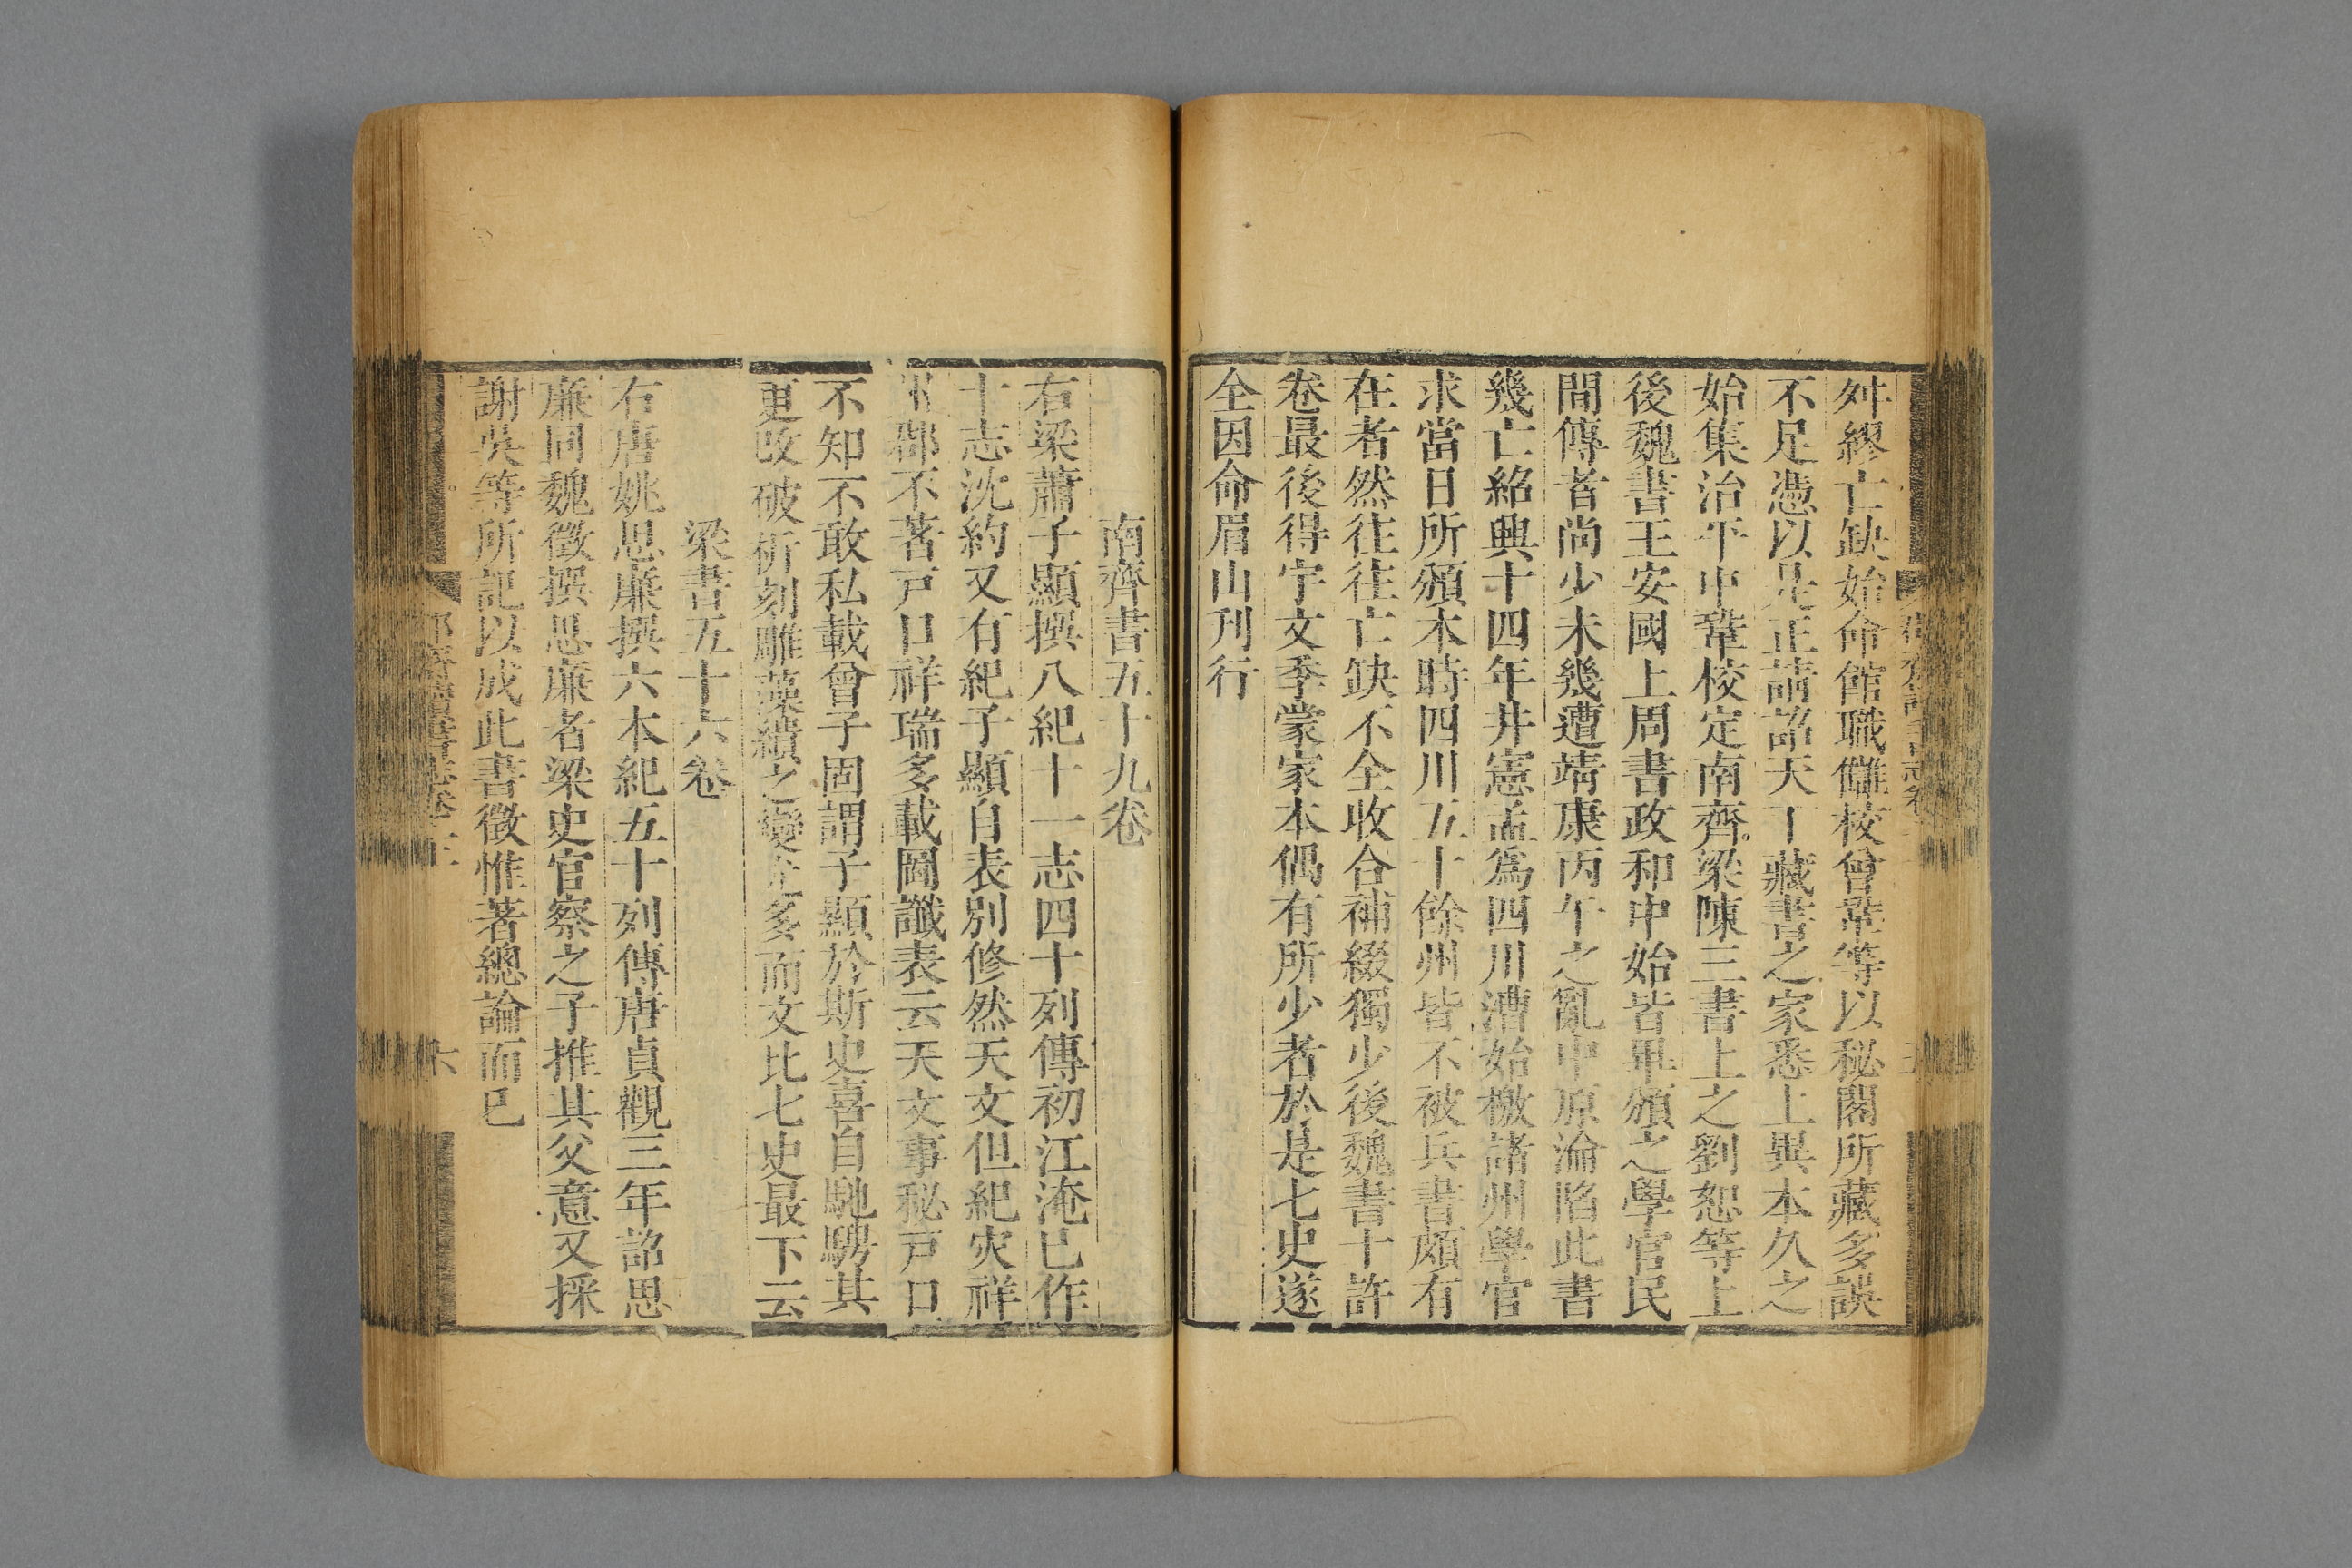 舛繆亡缺始命館職讎校曾鞏等以秘閣所藏多誤
不足憑以是正請詔天下藏書之家悉上異本久之
始集治平中鞏校定南齊梁陳三書上之劉恕等上
後魏書王安國上周書政和中始皆畢頒之學官民
間傳者尚少未幾遭靖康丙午之亂中原淪陷此書
幾亡紹興十四年井憲孟爲四川漕始檄諸州學官
求當日所頒本時四川五十餘州皆不被兵書頗有
在者然往往亡缺不全收合補綴獨少後魏書十許
卷最後得宇文季蒙家本偶有所少者於是七史遂
全因命眉山刊行
南齊書五十九卷
右梁蕭子顯撰八紀十一志四十列傳初江淹已作
十志沈約又有紀子顯自表別修然天文但紀灾祥
州郡不著戸口祥瑞多載圖讖表云天文事秘戸口
不知不敢私載曾子固謂子顯於斯史喜自馳騁其
更改破析刻雕藻繢之變尤多而文比七史最下云
梁書五十六卷
右唐姚思廉撰六本紀五十列傳唐貞觀三年詔思
廉同魏徵撰思廉者梁史官察之子推其父意又採
謝吳等所記以成此書徵惟著總論而已
六